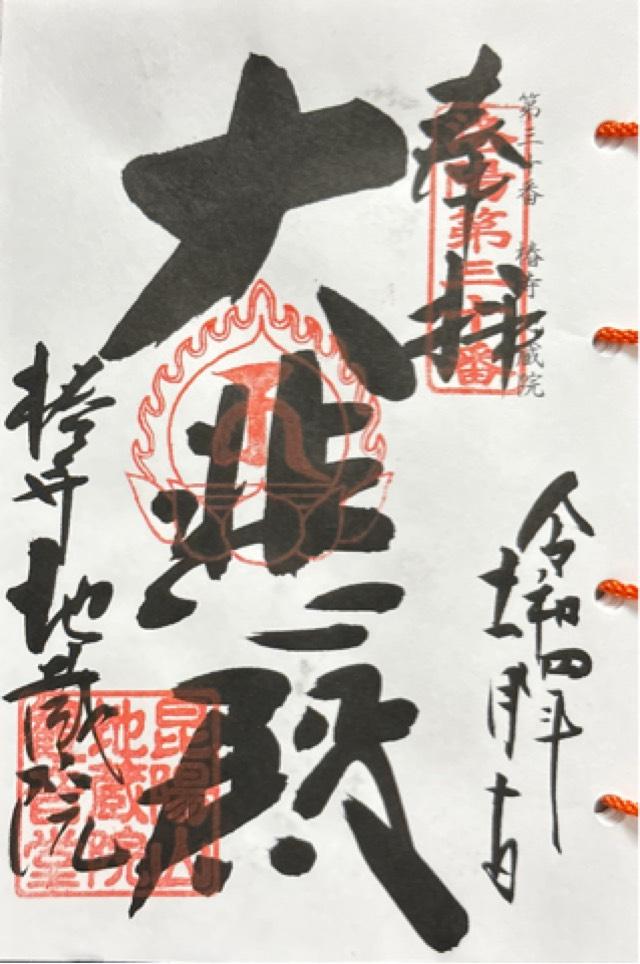 第三十番 椿寺 地蔵院
洛陽第三十番
奉拝
令和四年
十一月十日
大悲殿
椿寺 地蔵院
昆陽山
地蔵院
観音堂